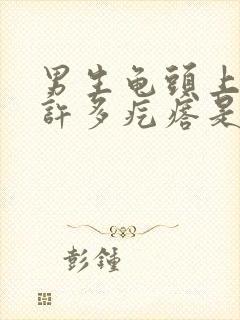 男生龟頭上
許多疙瘩是
彭鍾